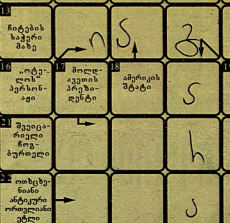 13
ჩიტების
საჭერი
ბადე
ი ა ვ
16
„ოტე-
ლოს"
პერსონ-
აჟი
17
მოლდ-
ავეთის
პრეზი-
დენტი
18
ამერიკის
შტატი
ა
21
შვეიცა-
რიელი
ჩოგ-
ბურთელი
ს
22
ოთხცხე-
ნიანი
ანტიკური
ორთვლიანი
ეტლი
ა